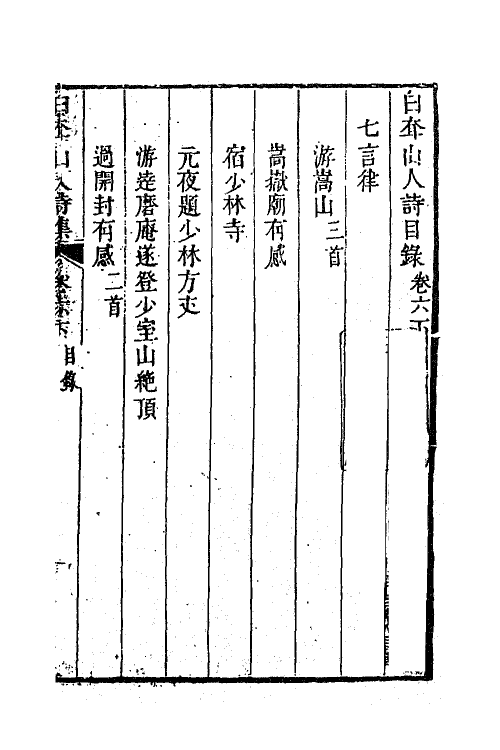 白夲山人詩目錄 卷六下
七言律
游嵩山三首
嵩嶽廟有感
宿少林寺
元夜題少林方丈
游達磨庵遂登少室山絶頂
過開封有感二首
白夲山人詩集 目錄